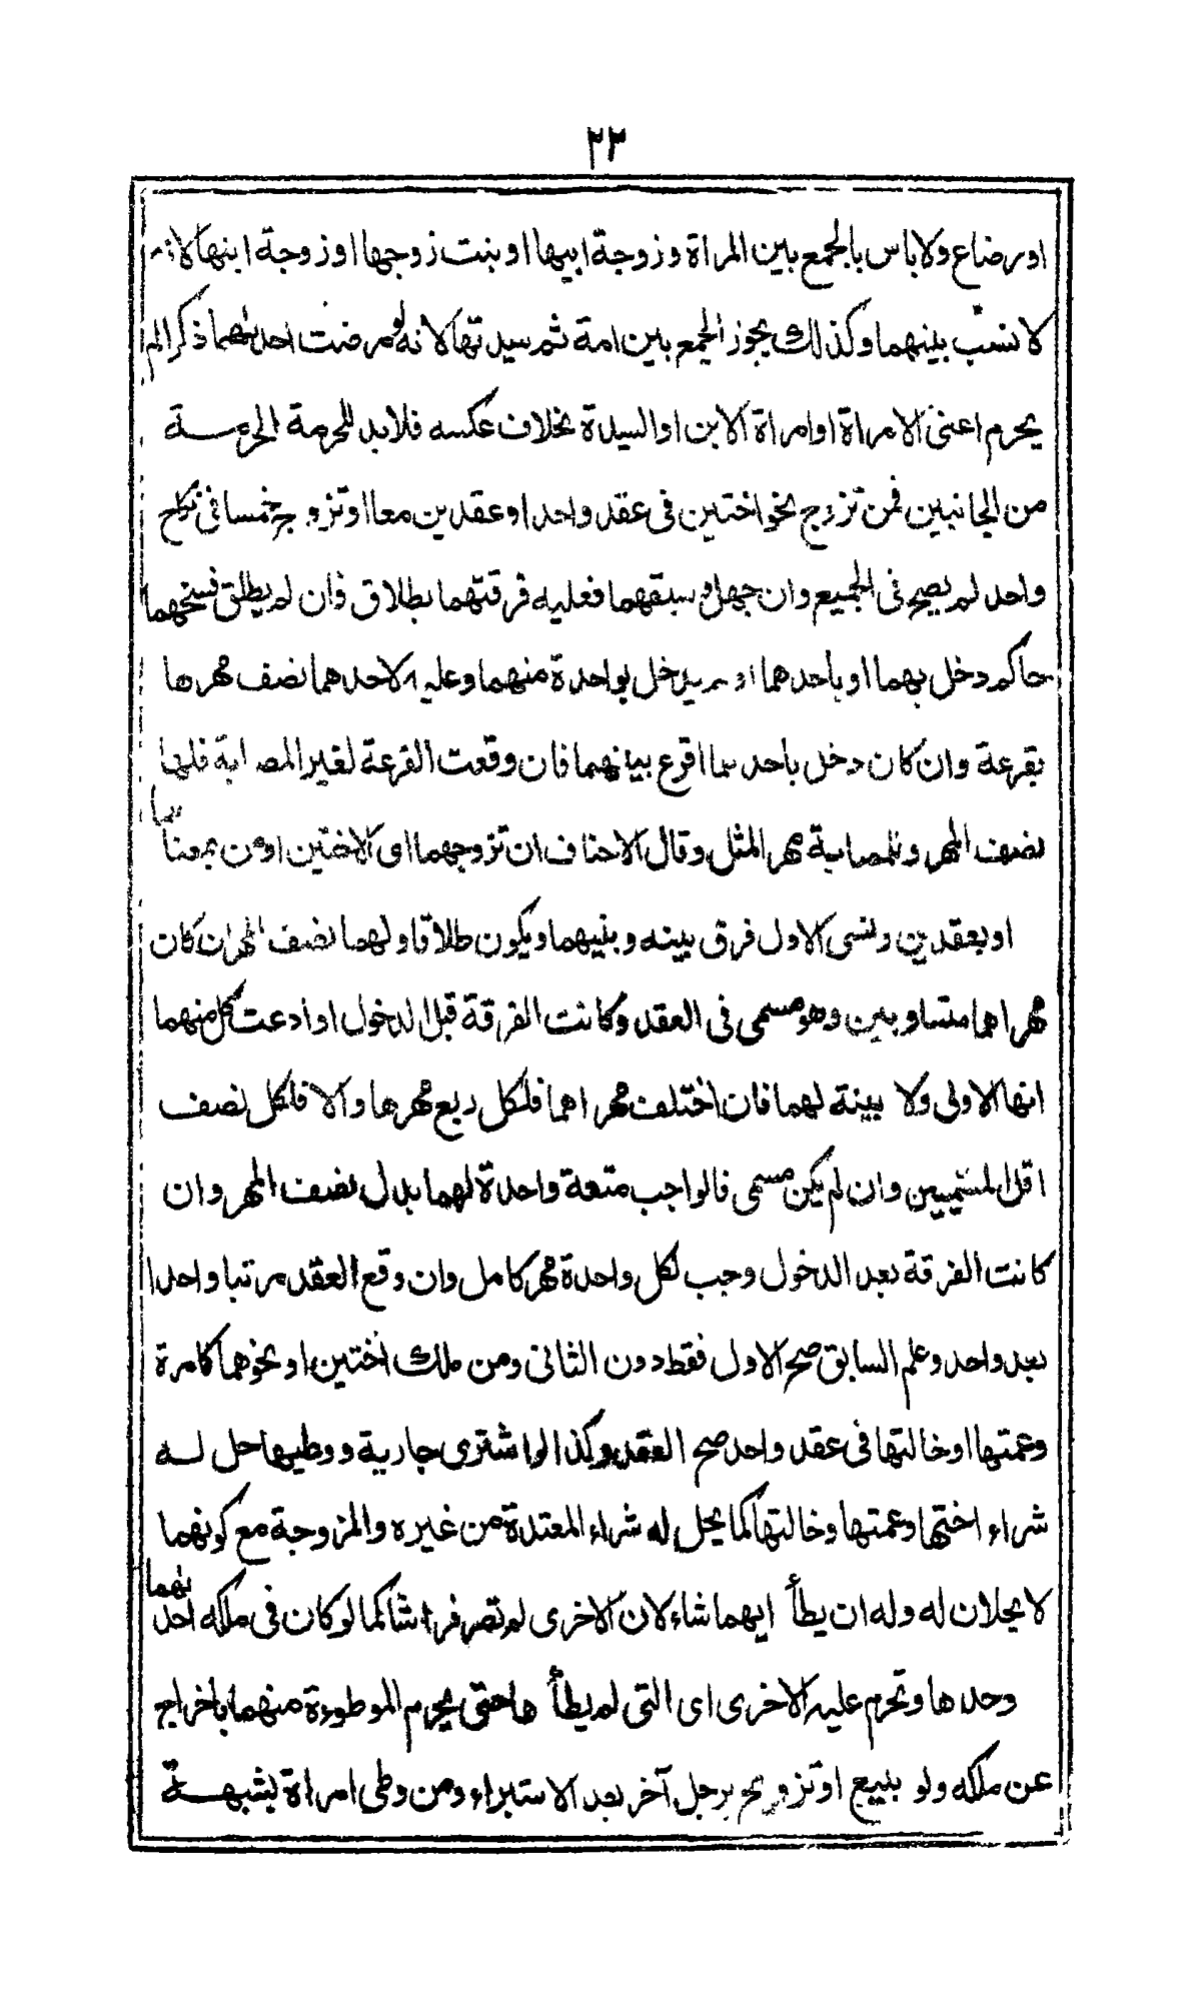 ٢٣
او رضاع ولا باس بالجمع بين المراة وزوجة ابيها او بنت زوجها او زوجة ابنها لانه
لا نسب بينهما وكذلك يجوز الجمع بين امة ثم سيدتها لانه لو فرضت احدٰهما ذكرا لم
يحرم اعنى الامراة او امراة الابن او السيدة بخلاف عكسه فلابد للحرمة الحرمـــة
من الجانبين فمن تزوج نحو اختين فى عقد واحد او عقدين معا او تزوج خمسا فى نكاح
واحد لم يصح فى الجميع وان جهل سبقهما فعليه فرقتهما بطلاق فان لم يطلق فسخهما
حاكم دخل بهما او باحدهما او يدخل بواحدة منهما وعليه لاحدهما نصف مهرها
بقرعة وان كان دخل باحدهما اقرع بينهما فان وقعت القرعة لغير المصابة فلها
نصف المهر وللمصابة مهر المثل وقال الاحناف ان تزوجهما اى الاختين او من بمعناهما
او بعقدين ونسى الاول فرق بينه وبينهما ويكون طلاقا ولهما نصف المهر ان كان
مهراهما متساويين وهو مسمى فى العقد وكانت الفرقة قبل الدخول او ادعت كل منهما
انها الاولى ولا بينة لهما فان اختلف مهراهما فلكل ربع مهرها والا فلكل نصف
اقل المسميين وان لم يكن مسمى فالواجب متعة واحدة لهما بدل نصف المهر وان
كانت الفرقة بعد الدخول وجب لكل واحدة مهر كامل وان وقع العقد مرتبا واحدا
بعد واحد وعلم السابق صح الاول فقط دون الثانى ومن ملك اختين او نحوهما كامرة
وعمتها او خالتها فى عقد واحد صح العقد وكذا لو اشترى جارية ووطيها حل لـــه
شراء اختها وعمتها وخالتها كما يحل له شراء المعتدة من غيره والمزوجة مع كونهما
لا يحلان له وله ان يطأ ايهما شاء لان الاخرى لم تصر فراشا كما لو كان فى ملكه احدٰهما
وحدها وتحرم عليه الاخرى اى التى لم يطأها حتى يحرم الموطوءة منهما باخراج
عن ملكه ولو ببيع او تزويج برجل آخر بعد الاستبراء ومن وطى امراة بشبهـــة